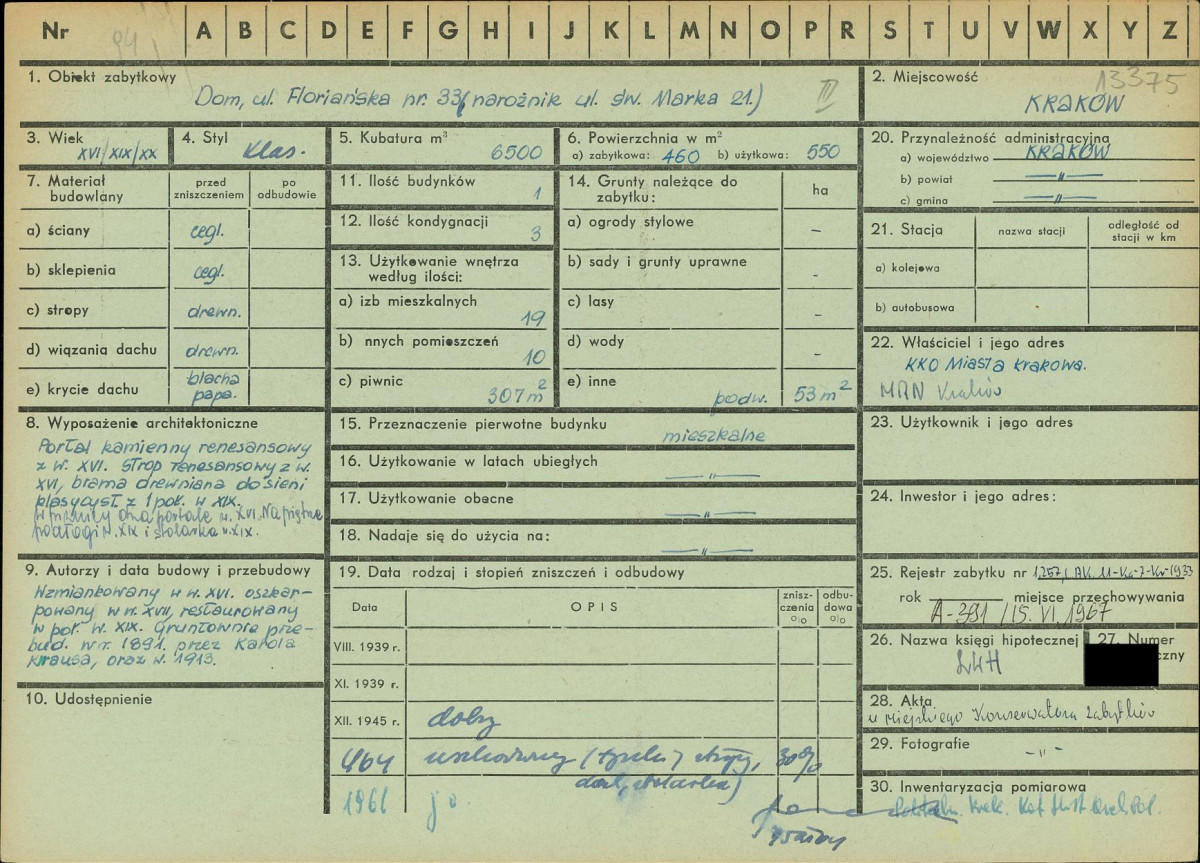 Nr 94 A B C D E F G H I J K L M N O P R S T U V W X Y Z
1. Obiekt zabytkowy
Dom, ul. Floriańska nr. 33 (narożnik ul. św. Marka 21.) III
2. Miejscowość 13375
KRAKÓW
3. Wiek
XVI/XIX/XX
4. Styl
klas.
5. Kubatura m³
6500
6. Powierzchnia w m²
a) zabytkowa: 460 b) użytkowa: 550
7. Materiał budowlany
przed zniszczeniem
po odbudowie
a) ściany cegl.
b) sklepienia cegl.
c) stropy drewn.
d) wiązania dachu drewn.
e) krycie dachu blacha
papa.
8. Wyposażenie architektoniczne
Portal kamienny renesansowy
z w. XVI. strop renesansowy z w.
XVI, brama drewniana do sieni
klasycyst. z 1 poł. w XIX.
w piwnicy dwa portale w. XVI. Na piętrze
podłogi w. XIX i stolarka w. XIX.
9. Autorzy i data budowy i przebudowy
Wzmiankowany w w. XVI. oszkar-
powany w w. XVII, restaurowany
w poł. w. XIX. Gruntownie prze-
bud. w r. 1891. przez Karola
Krausa, oraz w. 1913.
10. Udostępnienie
11. Ilość budynków
1
12. Ilość kondygnacji
3
13. Użytkowanie wnętrza
według ilości:
a) izb mieszkalnych
19
b) nnych pomieszczeń
10
c) piwnic
307 m²
14. Grunty należące do
zabytku:
ha
a) ogrody stylowe -
b) sady i grunty uprawne -
c) lasy -
d) wody -
e) inne
podw. 53 m²
15. Przeznaczenie pierwotne budynku
mieszkalne
16. Użytkowanie w latach ubiegłych
—〃—
17. Użytkowanie obecne
—〃—
18. Nadaje się do użycia na:
—〃—
19. Data rodzaj i stopień zniszczeń i odbudowy
Data
OPIS
znisz-
czenia
%
odbu-
dowa
%
VIII. 1939 r.
XI. 1939 r.
XII. 1945 r. dobry
30%
1961
20. Przynależność administracyjna
a) województwo KRAKÓW
b) powiat —〃—
c) gmina —〃—
21. Stacja
nazwa stacji
odległość od
stacji w km
a) kolejowa
b) autobusowa
22. Właściciel i jego adres
KKO Miasta Krakowa.
MRN Kraków
23. Użytkownik i jego adres
24. Inwestor i jego adres:
25. Rejestr zabytku nr 1257, AK. 11-Ka-7-Kr-1933
rok miejsce przechowywania
A-391 /15. VI. 1967
26. Nazwa księgi hipotecznej
LWH
27. Numer
czny
28. Akta
u miejskiego Konserwatora Zabytków
29. Fotografie
-〃-
30. Inwentaryzacja pomiarowa